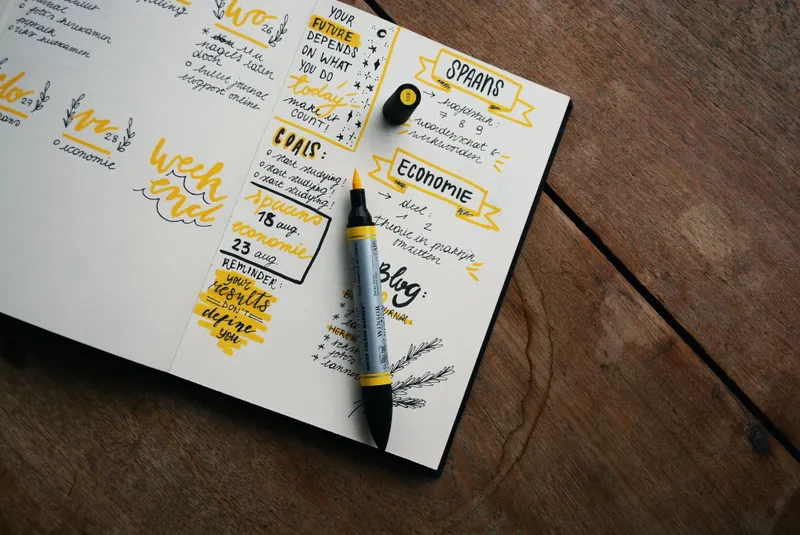 foto's bewerken
bewerken
Wo
26
nagels laten
doen
bullet journal
blogpost online
do
29
vr
28
economie
week
end
YOUR
FUTURE
DEPENDS
ON WHAT
YOU DO
today
make it
COUNT!
GOALS:
start studying!
start studying!
start studying!
spaans
18 aug.
economie
23 aug.
REMINDER:
your
results
DON'T
define
you
SPAANS
→ hoofdstuk:
7 8 9
woordenschat &
werkwoorden
ECONOMIE
→ deel:
1 2
theorie in
omzetten
Blog:
WINSOR